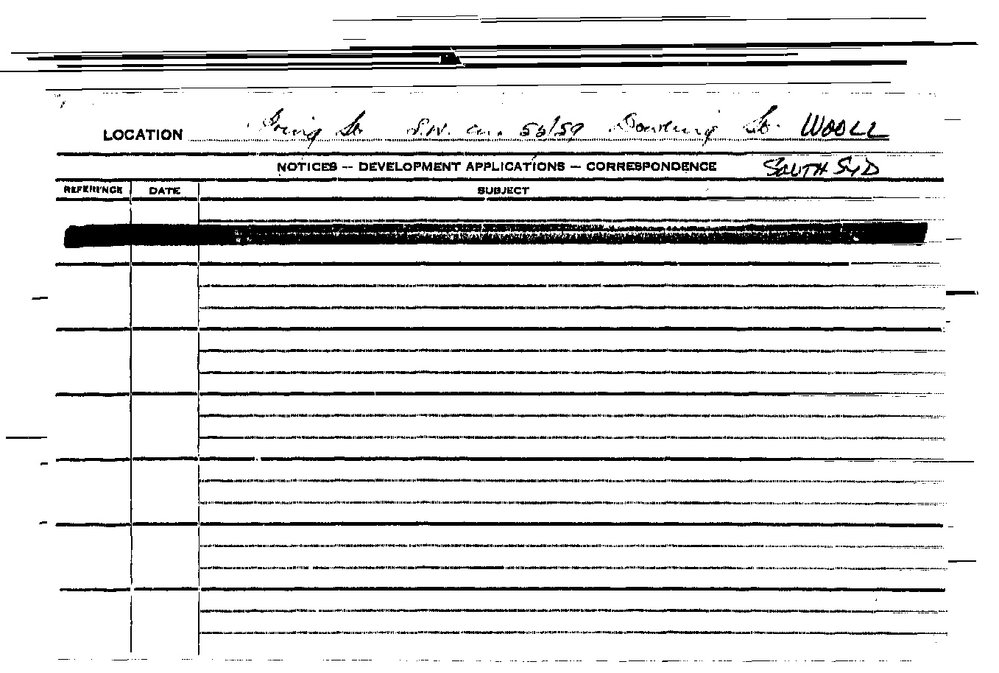 LOCATION Irving St. S.W. cnr. 56/59 Dowling St. WOOLL
NOTICES — DEVELOPMENT APPLICATIONS — CORRESPONDENCE SOUTH SYD
REFERENCE DATE SUBJECT